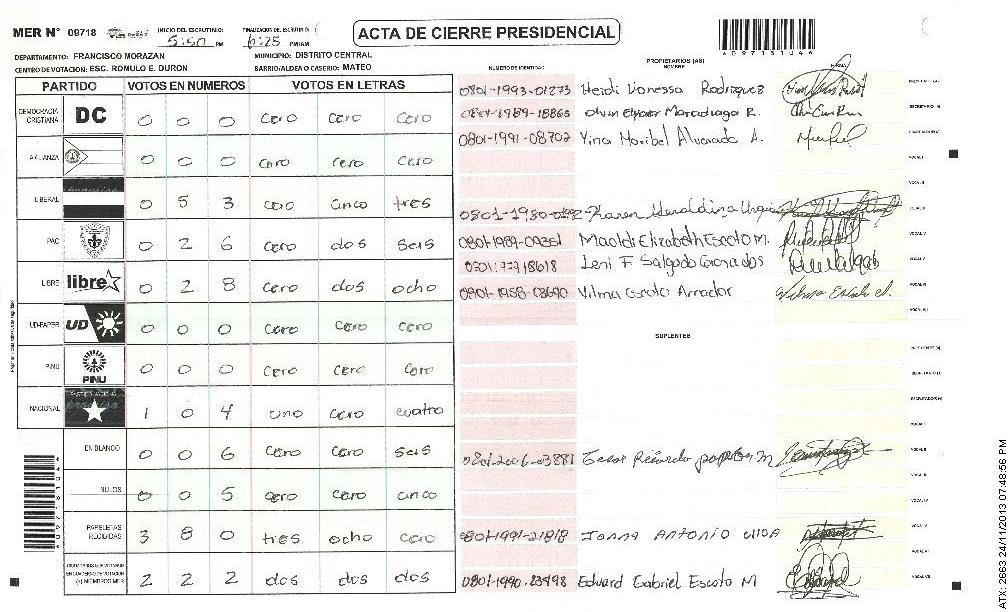 MER N° 09718 INICIO DEL ESCRUTINIO: 5:50 PM FINALIZACION DEL ESCRUTINIO: 6:25 PM/AM ACTA DE CIERRE PRESIDENCIAL
DEPARTAMENTO: FRANCISCO MORAZAN MUNICIPIO: DISTRITO CENTRAL
CENTRO DE VOTACION: ESC. ROMULO E. DURON BARRIO/ALDEA O CASERIO: MATEO
PARTIDO VOTOS EN NUMEROS VOTOS EN LETRAS
DEMOCRACIA CRISTIANA DC 0 0 0 cero cero cero
ALIANZA 0 0 0 cero cero cero
LIBERAL 0 5 3 cero cinco tres
PAC 0 2 6 cero dos seis
LIBRE libre 0 2 8 cero dos ocho
UD-FAPER UD 0 0 0 cero cero cero
PINU PINU 0 0 0 cero cero cero
NACIONAL 1 0 4 uno cero cuatro
EN BLANCO 0 0 6 cero cero seis
NULOS 0 0 5 cero cero cinco
PAPELETAS RECIBIDAS 3 8 0 tres ocho cero
CIUDADANOS QUE VOTARON EN CUADERNO DE VOTACION (+) MIEMBROS MER 2 2 2 dos dos dos
NUMERO DE IDENTIDAD PROPIETARIOS (AS) NOMBRE FIRMA
0801-1993-01273 Heidi Vanessa Rodriguez
Olvin
0801-1991-08702 Yina Maribel Alvarado A.
Karen Geraldina
0801-1989-09351 Elizabeth Escoto M.
Leni F Salgado
0801-1958-08690 Vilma Amador
SUPLENTES
Cesar Ricardo
0801-1991-21818 Antonio Ulloa
0801-1990-23498 Eduard Gabriel Escoto M
ATX: 2663 24/11/2013 07:48:56 PM